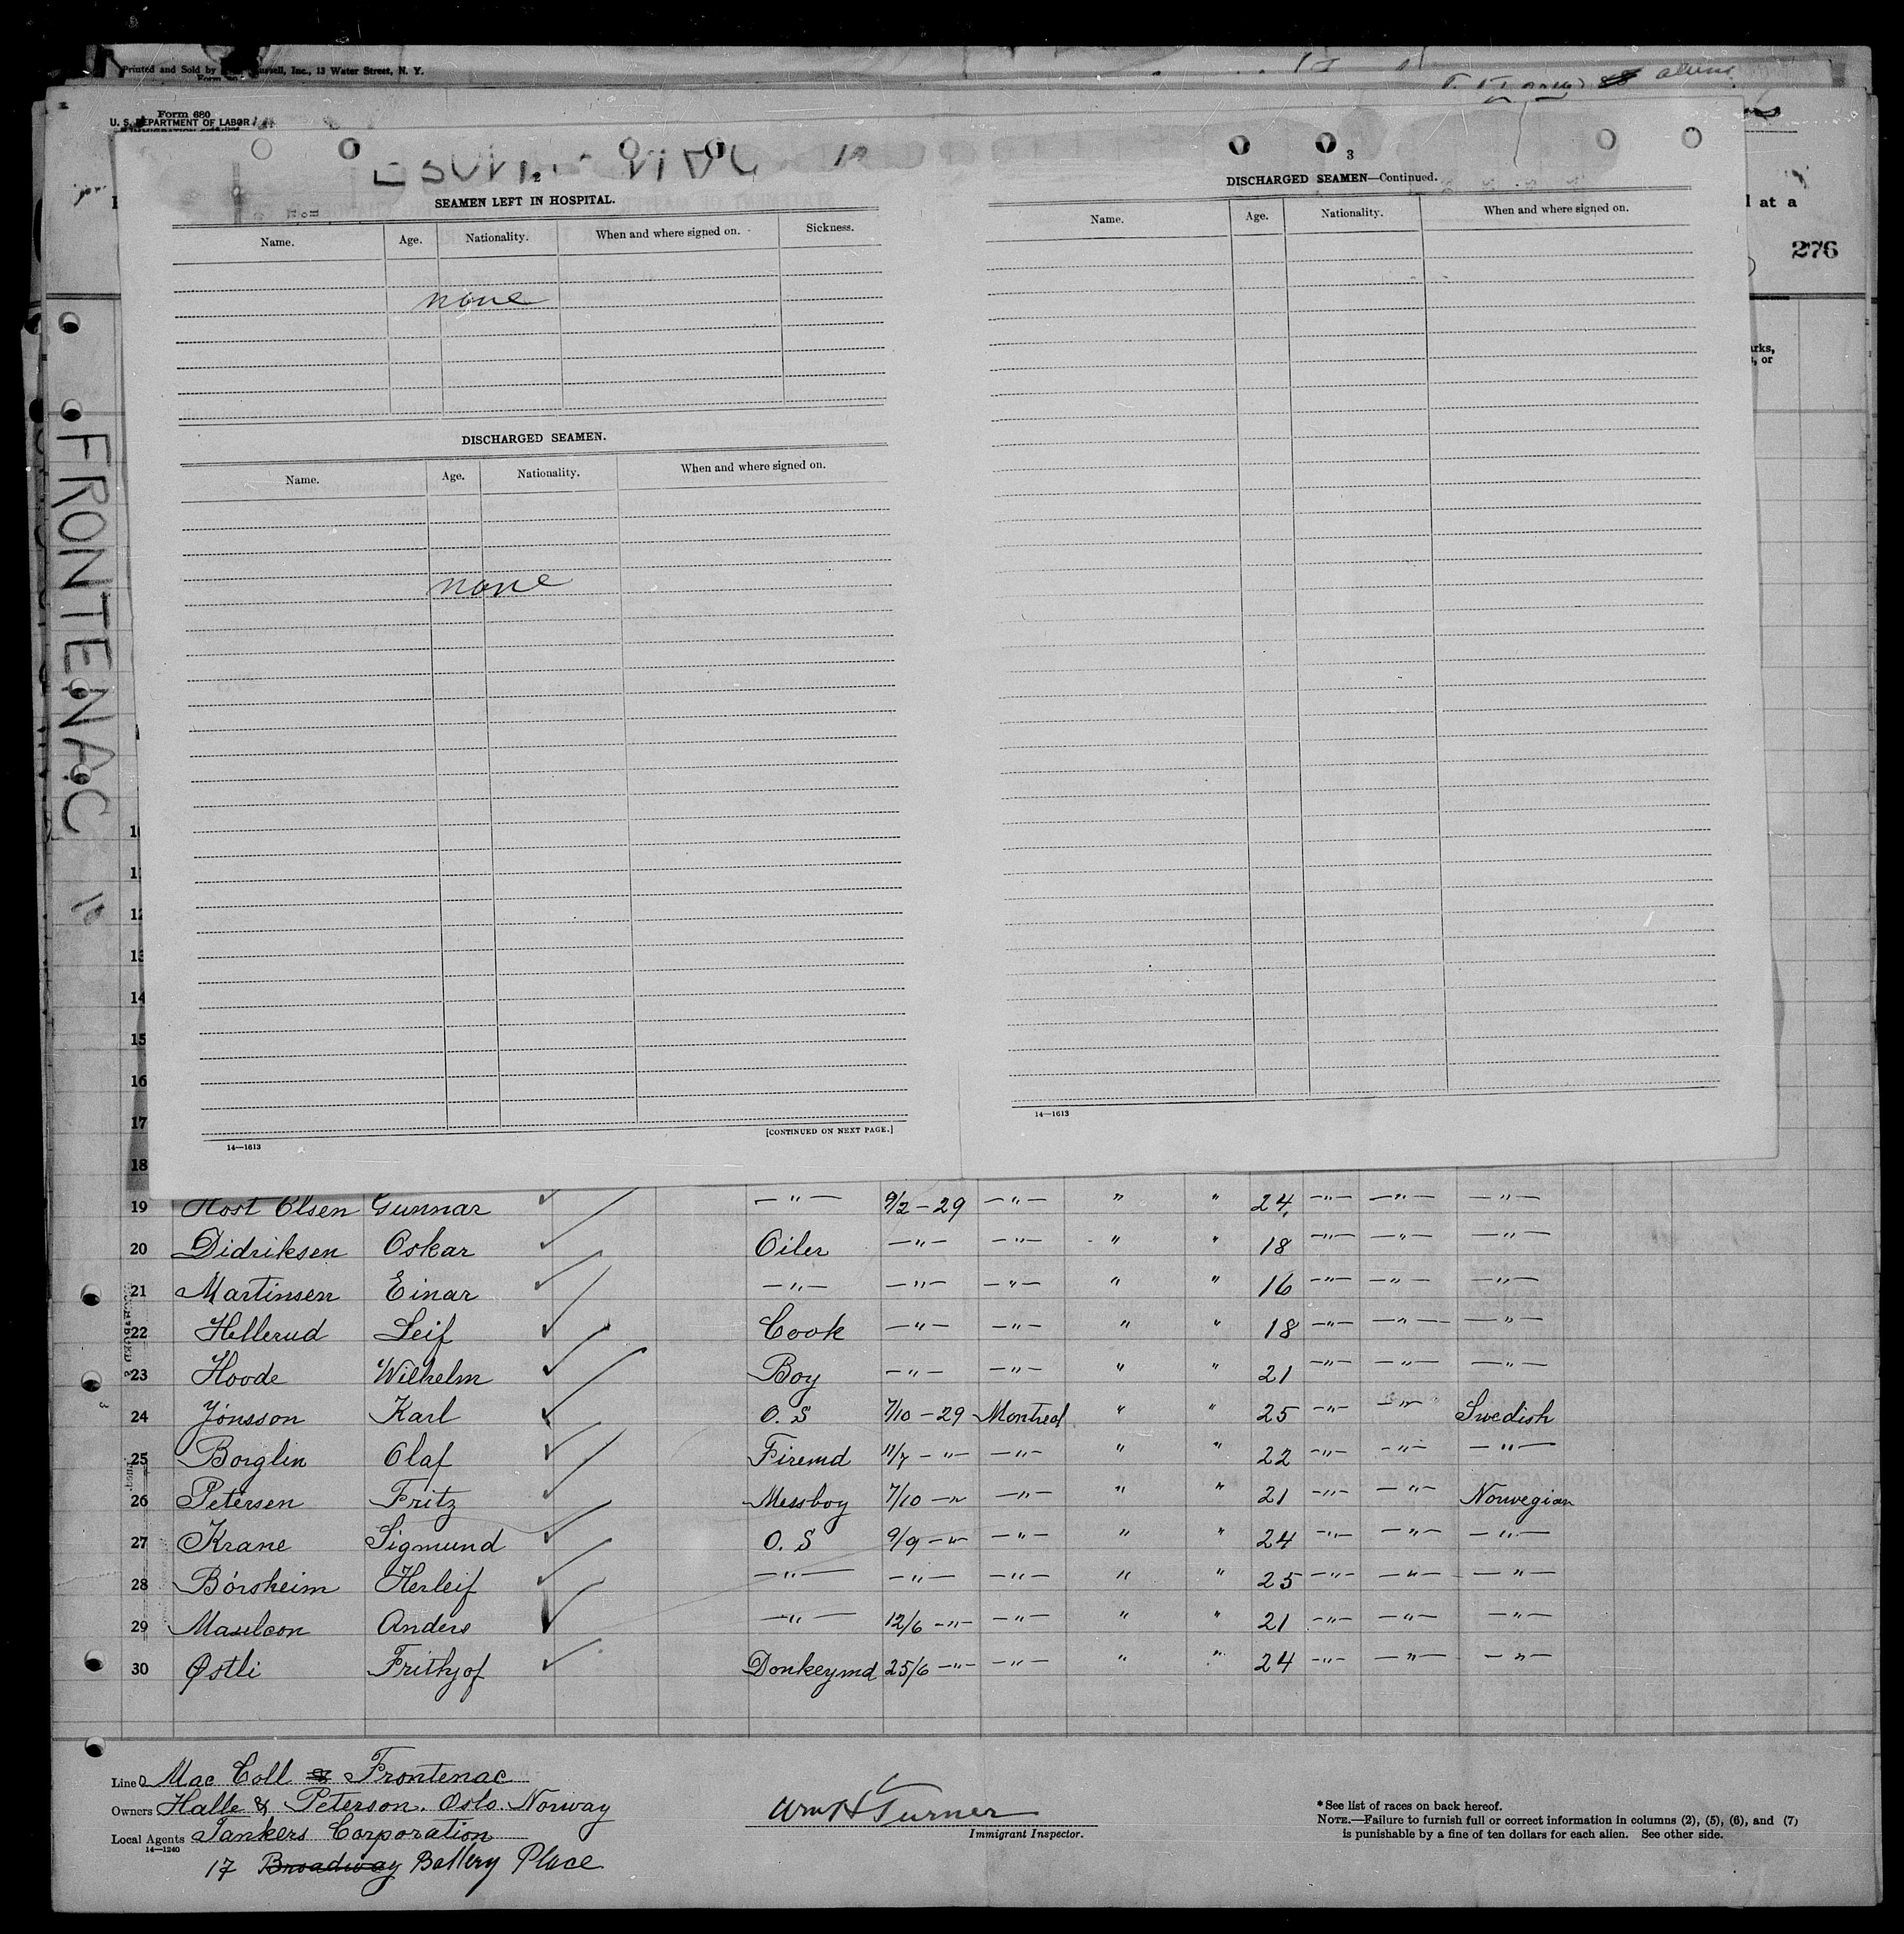 Printed and Sold by
ssell, Inc., 13 Water Street, N. Y.
Form 680
U. S. DEPARTMENT OF LABOR
l at a
276
arks,
s, or
FRONTENAC
2
SEAMEN LEFT IN HOSPITAL.
Name. Age. Nationality. When and where signed on. Sickness.
none
DISCHARGED SEAMEN.
Name. Age. Nationality. When and where signed on.
none
14—1613 [CONTINUED ON NEXT PAGE.]
3
DISCHARGED SEAMEN—Continued.
Name. Age. Nationality. When and where signed on.
14—1613
10
11
12
13
14
15
16
17
18
19 Høst Olsen Gunnar —"— 9/2 - 29 —"— " " 24 —"— —"— —"—
20 Didriksen Oskar Oiler —"— —"— " " 18 —"— —"— —"—
21 Martinsen Einar —"— —"— —"— " " 16 —"— —"— —"—
22 Hellerud Leif Cook —"— —"— " " 18 —"— —"— —"—
23 Hovde Wilhelm Boy —"— —"— " " 21 —"— —"— —"—
24 Jónsson Karl O. S 7/10 - 29 Montreal " " 25 —"— —"— Swedish
25 Borglin Olaf Firemd 11/7 - " - —"— " " 22 —"— —"— —"—
26 Petersen Fritz Messboy 7/10 —"— —"— " " 21 —"— —"— Norwegian
27 Krane Sigmund O. S 9/9 —"— —"— " " 24 —"— —"— —"—
28 Bórsheim Herleif —"— —"— —"— " " 25 —"— —"— —"—
29 Anders —"— 12/6 —"— —"— " " 21 —"— —"— —"—
30 Østli Frithjof Donkeymd 25/6 —"— —"— " " 24 —"— —"— —"—
Line Mac Coll & Frontenac
Owners Halle & Peterson. Oslo. Norway
Local Agents Tankers Corporation
14—1240
17 Broadway Battery Place
Wm H Turner
Immigrant Inspector.
* See list of races on back hereof.
NOTE.—Failure to furnish full or correct information in columns (2), (5), (6), and (7)
is punishable by a fine of ten dollars for each alien. See other side.